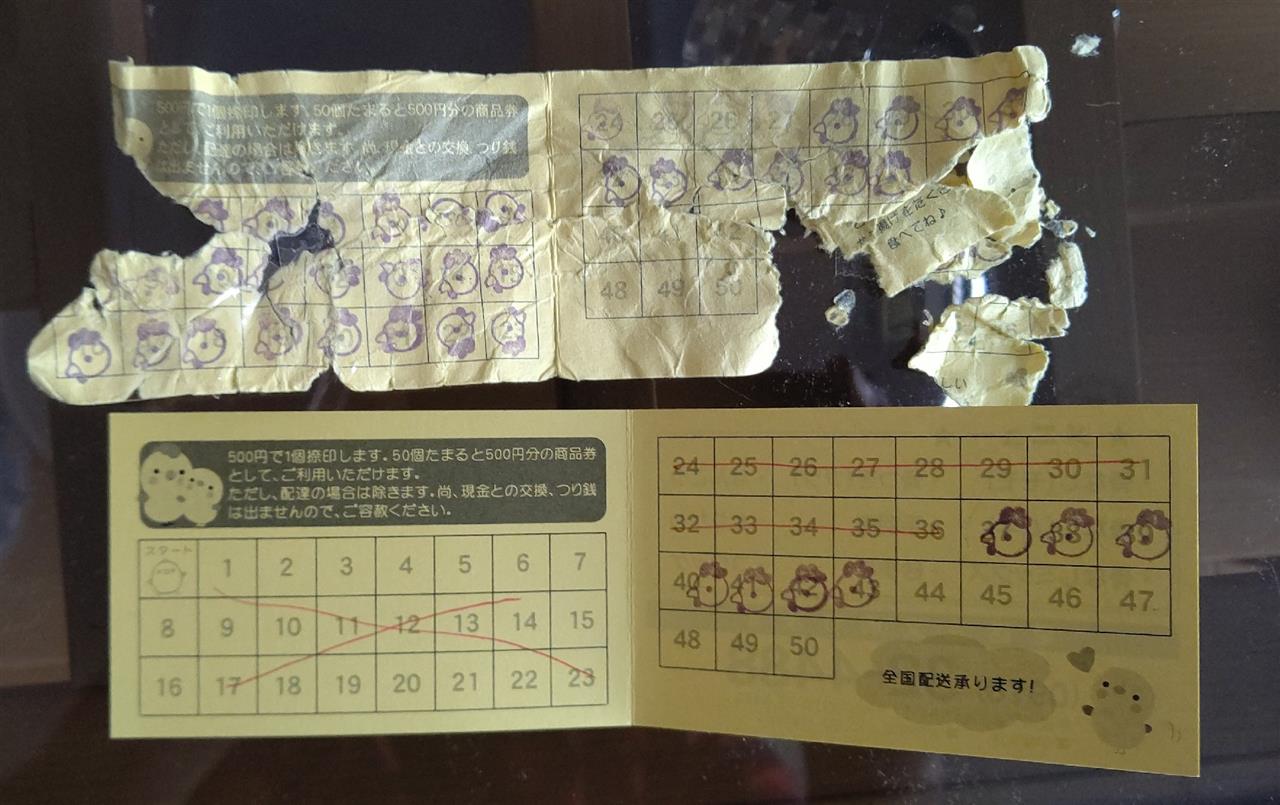 500円で1個捺印します。50個たまると500円分の商品券
として、ご利用いただけます。
ただし、配達の場合は除きます。尚、現金との交換、つり銭
は出ませんので、ご容赦ください。
24 25 26 27
42
48 49 50
食べてね♪
しい
500円で1個捺印します。50個たまると500円分の商品券
として、ご利用いただけます。
ただし、配達の場合は除きます。尚、現金との交換、つり銭
は出ませんので、ご容赦ください。
スタート
1 2 3 4 5 6 7
8 9 10 11 12 13 14 15
16 17 18 19 20 21 22 23
24 25 26 27 28 29 30 31
32 33 34 35 36
40 44 45 46 47
48 49 50
全国配送承ります!